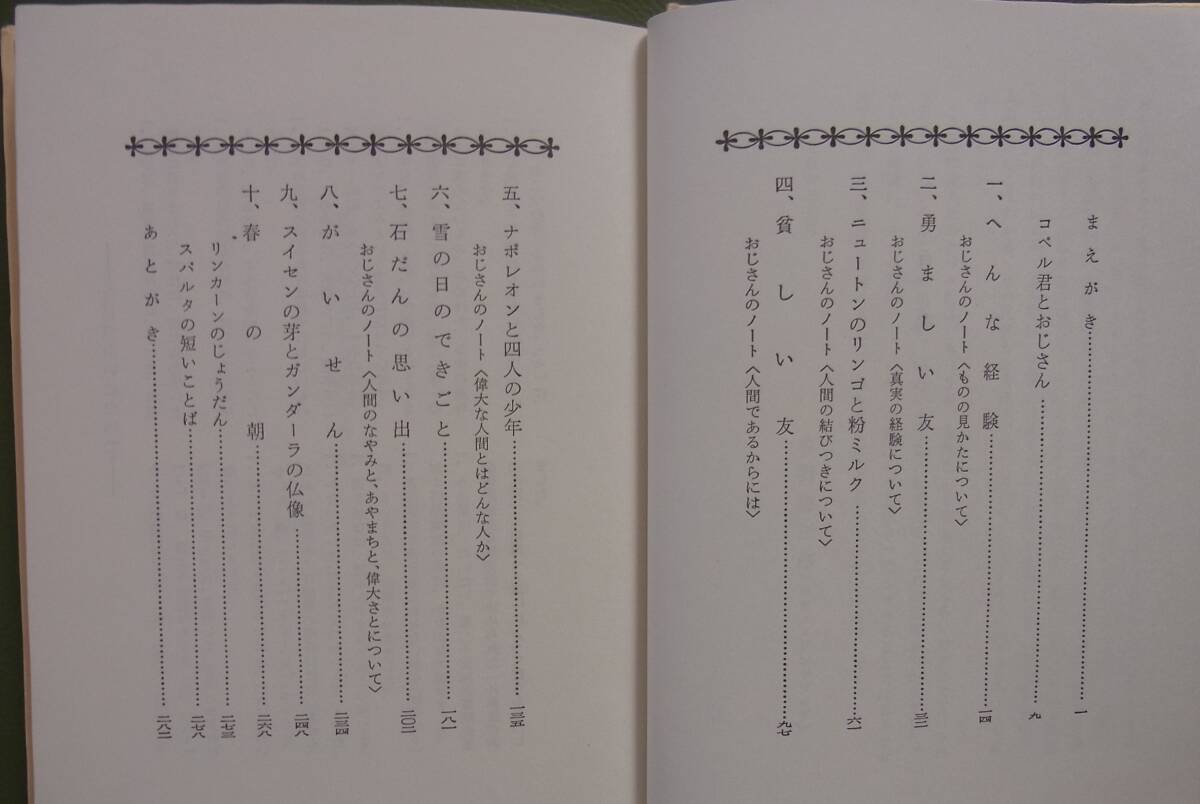 まえがき……一
コペル君とおじさん……九
一、へんな経験……一四
おじさんのノート〈ものの見かたについて〉
二、勇ましい友……三二
おじさんのノート〈真実の経験について〉
三、ニュートンのリンゴと粉ミルク……六一
おじさんのノート〈人間の結びつきについて〉
四、貧しい友……九七
おじさんのノート〈人間であるからには〉
五、ナポレオンと四人の少年……一三五
おじさんのノート〈偉大な人間とはどんな人か〉
六、雪の日のできごと……一八一
七、石だんの思い出……二〇二
おじさんのノート〈人間のなやみと、あやまちと、偉大さとについて〉
八、がいせん……二三四
九、スイセンの芽とガンダーラの仏像……二四八
十、春の朝……二六八
リンカーンのじょうだん……二七三
スパルタの短いことば……二七八
あとがき……二八二